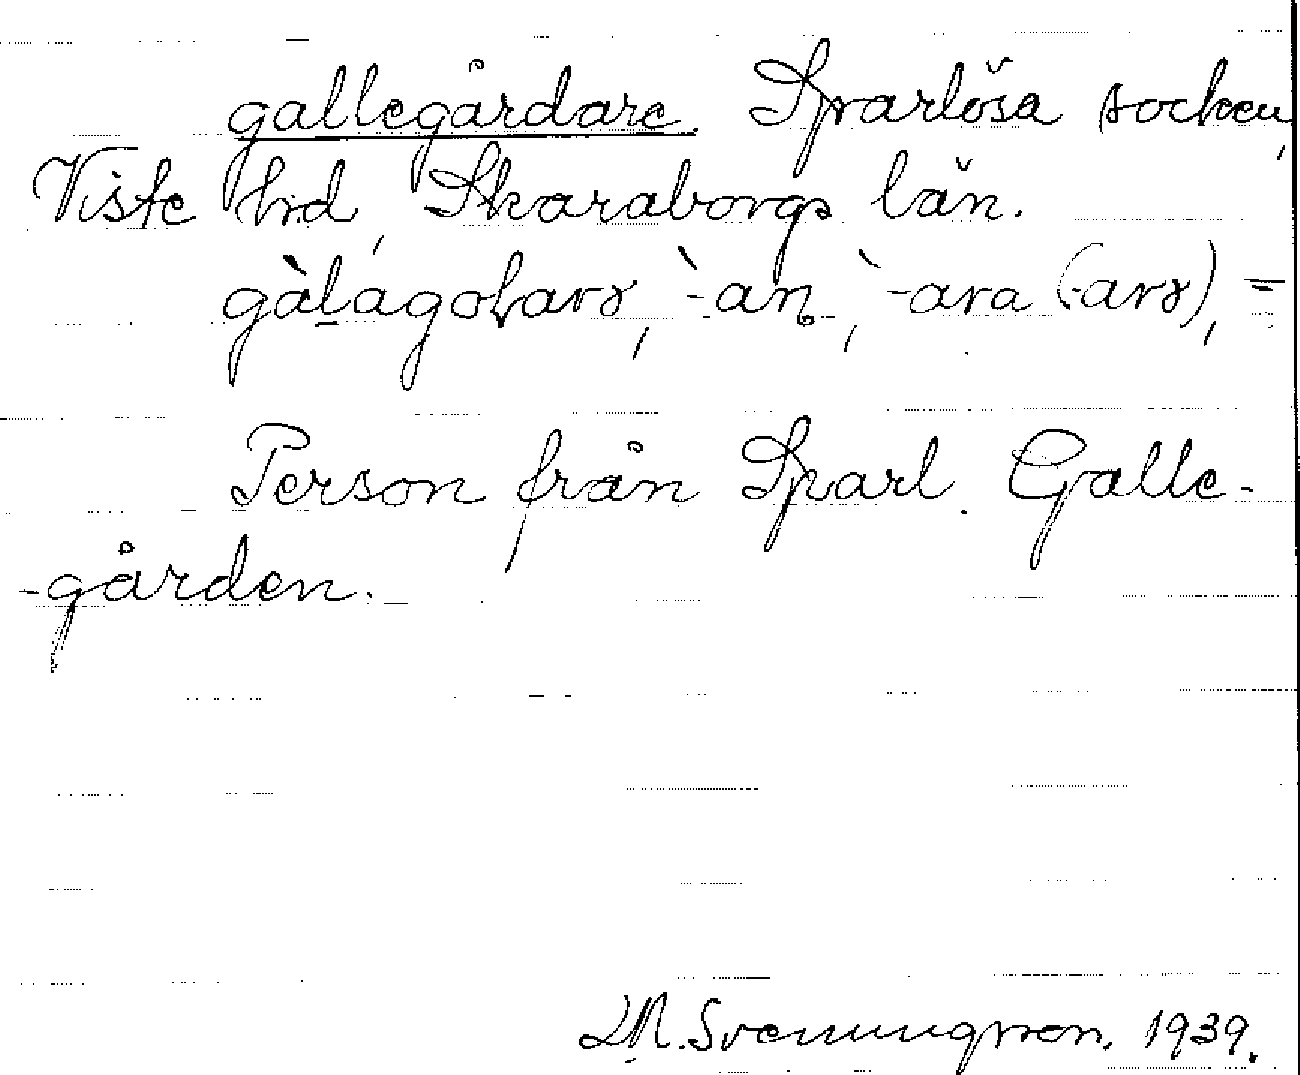 gallegårdare. Sparlösa socken,
Viste hd, Skaraborgs län.
-an, -ara
Person från Sparl. Galle-
-gården.
Svenungsson. 1939.